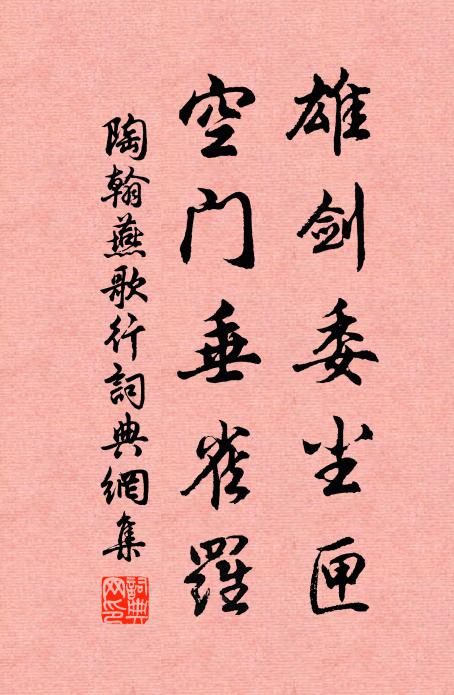 雄剑委尘匣
空门垂雀羅
陶翰燕歌行詞典網集
詞典网印